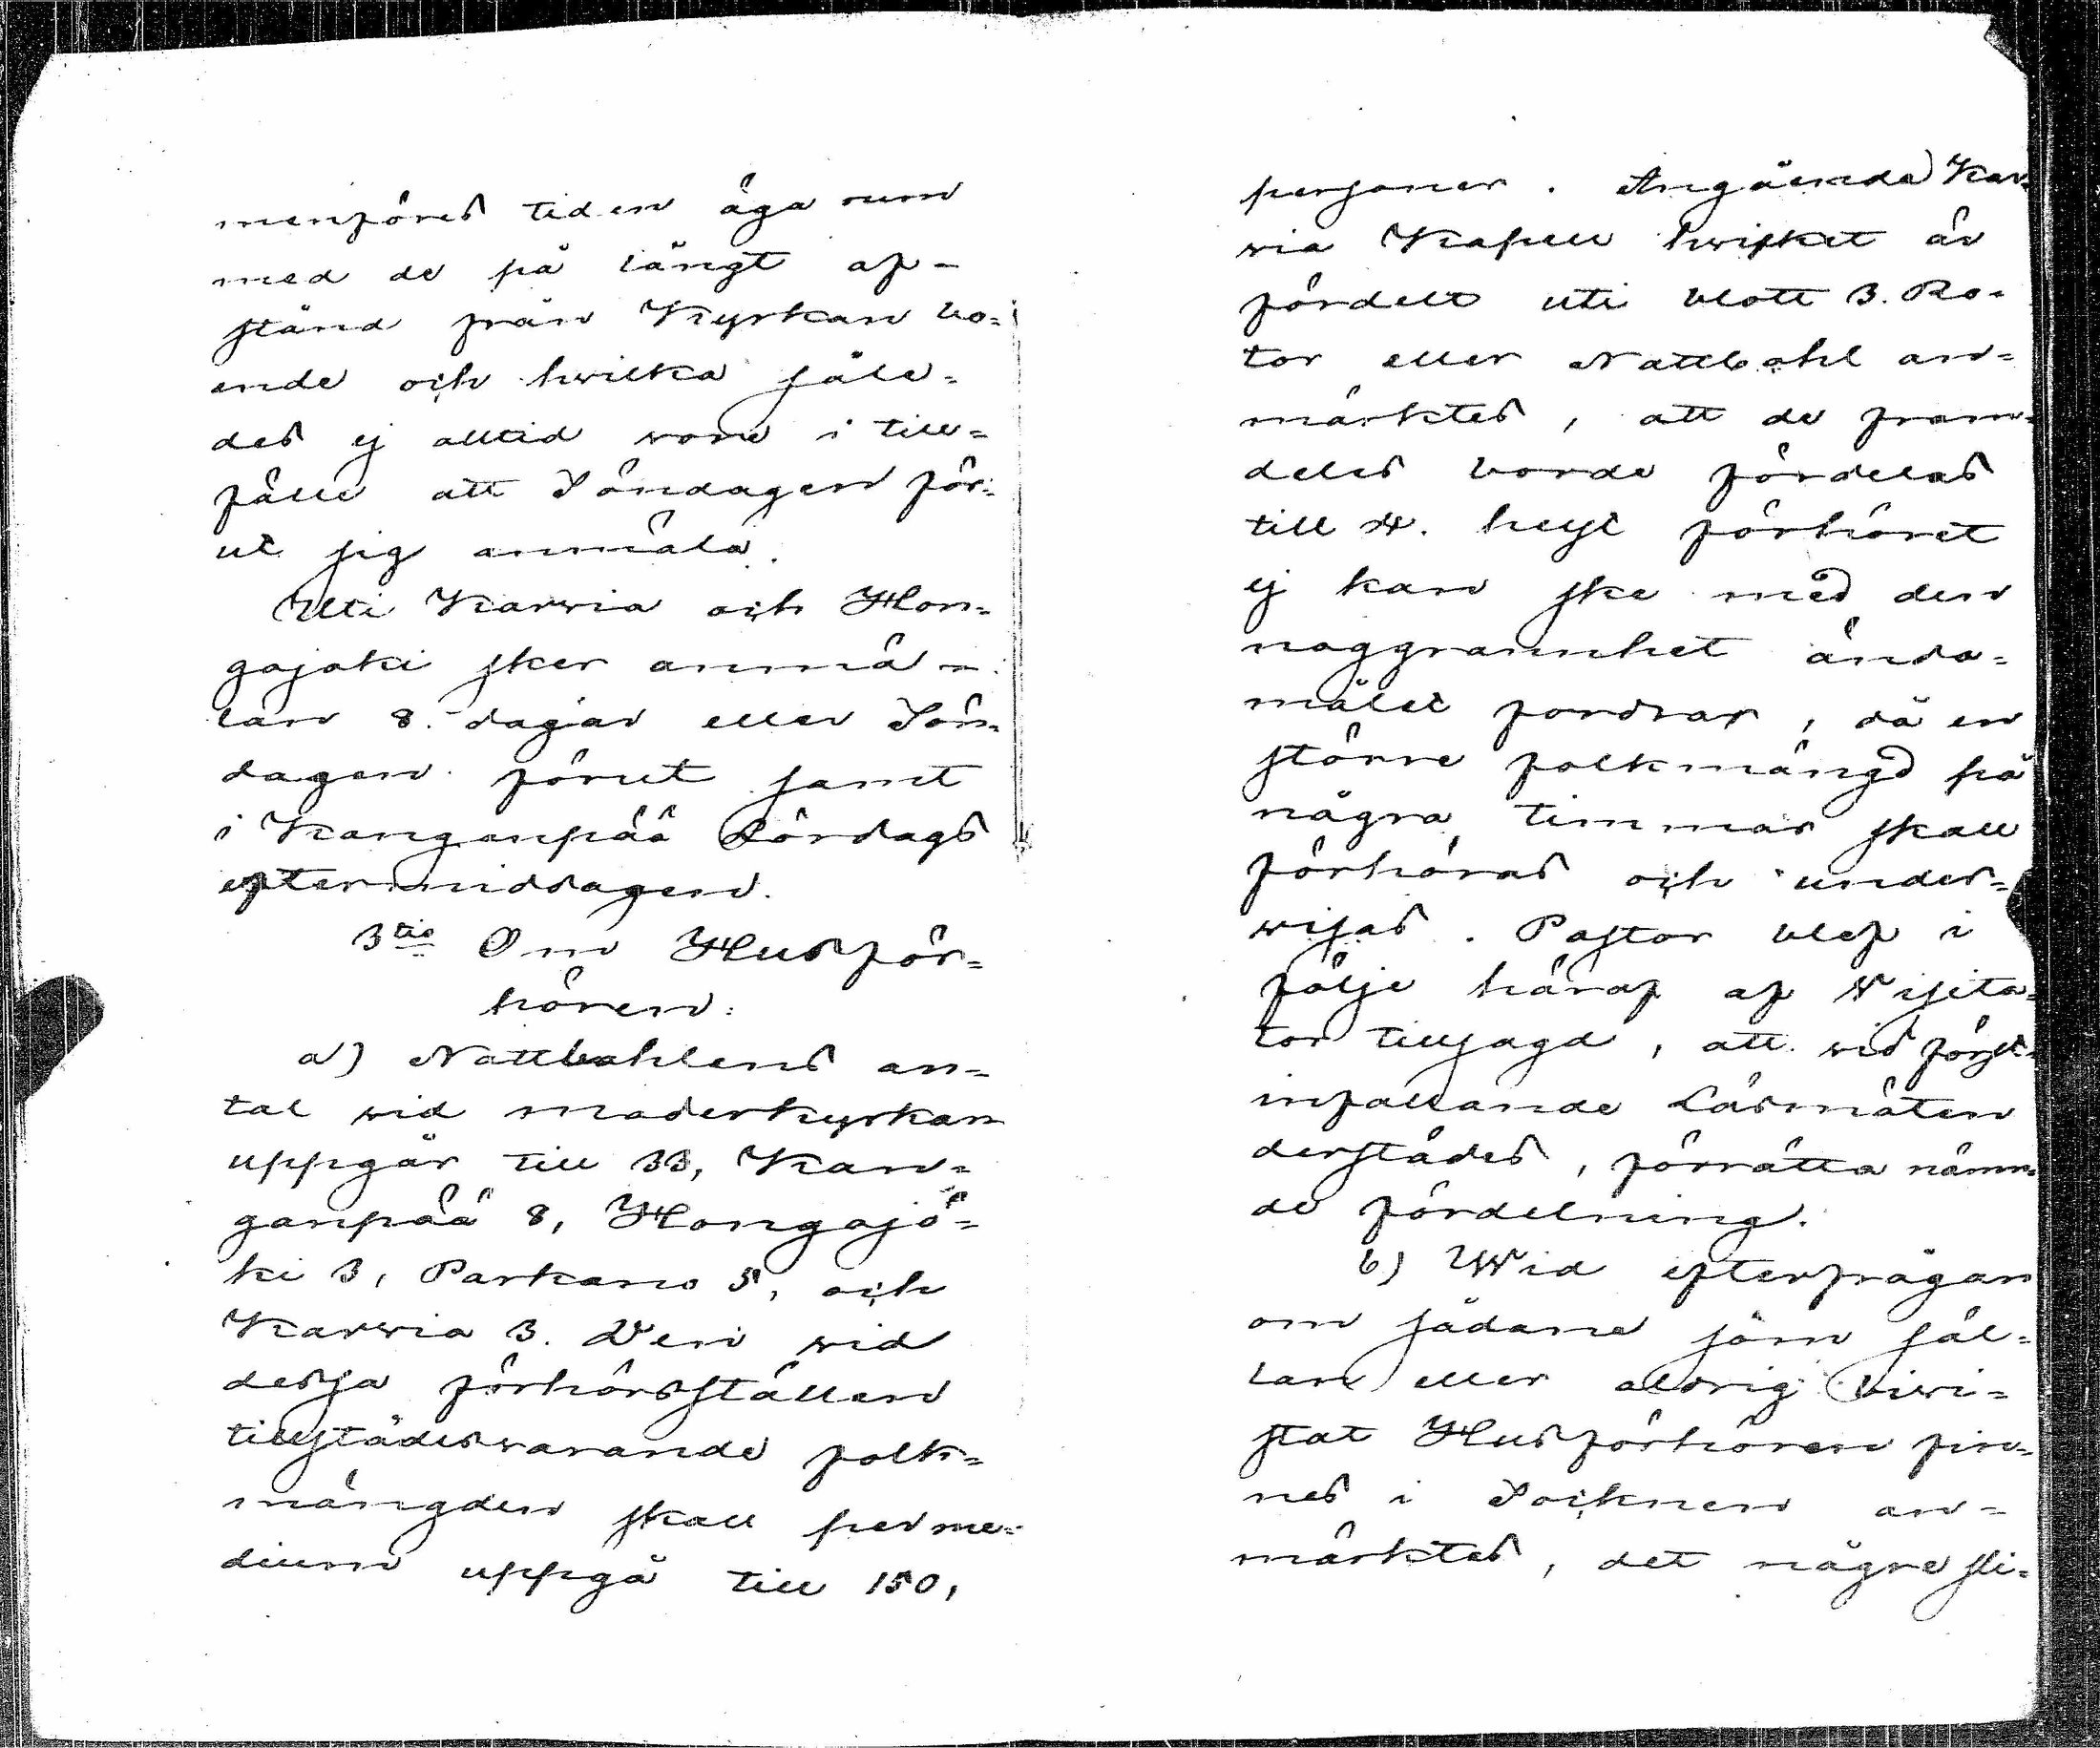 menföres tiden äga rum
med de på långt af-
stånd från Kyrkan bo=
ende och hwilka såle=
des ej alltid wore i till=
fälle att Söndagen för=
ut sig anmäla.
Uti Karvia och Hon=
gajoki sker anmä=
lan 8. dagar eller Sön=
dagen förut samt
i Kanganpää Lördags
eftermiddagen.
3tio Om Husför=
hören:
a) Nattbahlens an=
tal wid moderkyrkan
uppgår till 33, Kan=
ganpää 8, Hongajo=
ki 3, Parkano 5, och
Karvia 3. Den wid
dessa förhörsställen
tillstädeswarande folk=
mängden skall per me=
dium uppgå till 150,
personer. Angående Kar=
via Kapell hwilket är
fördelt uti blott 3. Ro=
tor eller Nattbahl an=
märktes, att de fram=
deles borde fördelas
till 4. helst förhöret
ej kan ske med den
noggrannhet ända=
målet fordrar, då en
större folkmängd på
några timmar skall
förhöras och under=
wisas. Pastor blef i
följe häraf af Visita=
tor tillsagd, att wid först=
infallande Läsmöten
derstädes, förrätta nämn=
de fördelning.
b) Wid efterfrågan
om sådane som säl=
lan eller aldrig biwi=
stat Husförhören fin=
nes i Socknen an=
märktes, det någre sli=